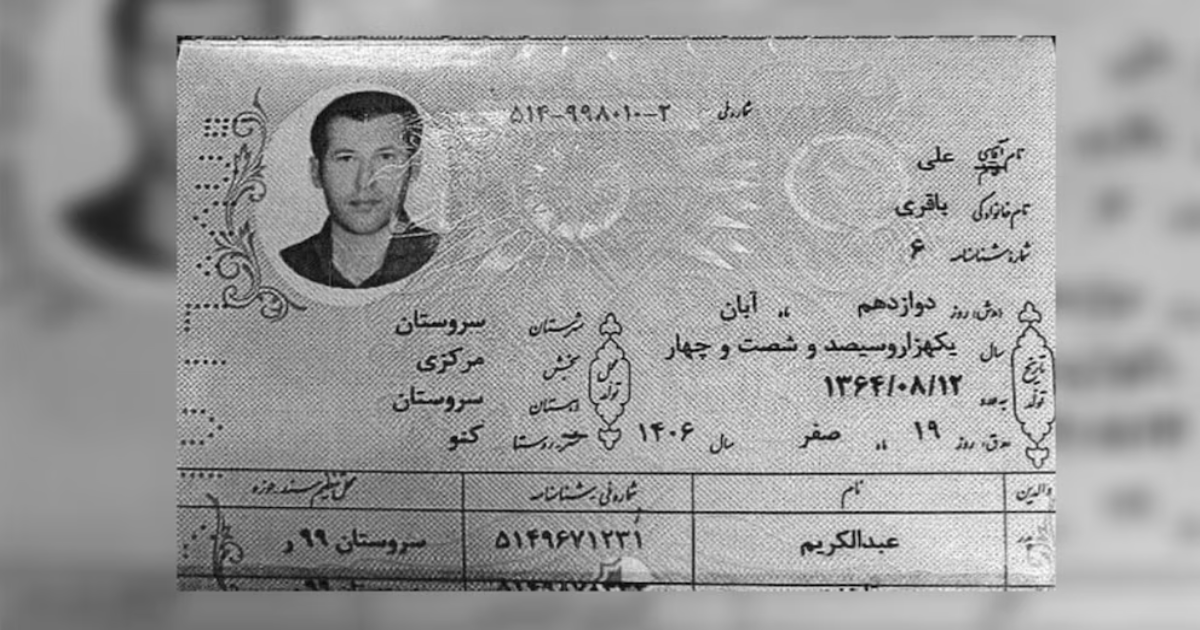 شماره ملی ۵۱۴-۹۹۸۰۱۰-۲
نام آقای علی
نام خانوادگی باقری
شماره شناسنامه ۶
تاریخ تولد
(ه.ش) روز دوازدهم ماه آبان
سال یکهزاروسیصد و شصت و چهار
به عدد ۱۳۶۴/۰۸/۱۲
(ه.ق) روز ۱۹ ماه صفر سال ۱۴۰۶
محل تولد
شهرستان سروستان
بخش مرکزی
دهستان سروستان
روستا کنو
والدین نام شماره ملی - شناسنامه محل تنظیم سند حوزه
پدر عبدالکریم ۵۱۴۹۶۷۱۲۳۱ سروستان ۹۹ر